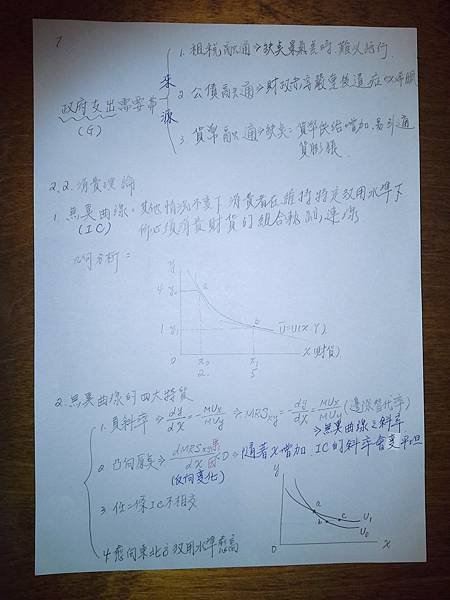 7
1. 租稅融通⇒缺失:景氣差時,難以施行.
來
政府支出需要靠
源
2. 公債融通⇒財政赤字嚴重後遺症
(G)
3. 貨幣融通⇒缺失:貨幣供給增加,易引通
貨膨脹.
2.2.消費理論
1. 無異曲線:其他情況不變下,消費者在維持特定效用水準下
(IC) 所必須消費財貨的組合軌跡連線
幾何分析:
y
4 y₀ a
1 y₁ b
U=U(X,Y)
0 x₀ x₁ X(財貨)
2 5
2.無異曲線的四大特質
1.負斜率⇒dy/dX=-MUx/MUy⇒MRSxy=-dy/dX=MUx/MUy(邊際替代率)
⇒無異曲線之斜率
2.凸向原點⇒dMRSxy/dX<0⇒隨著X增加,IC的斜率會變平坦
果
因
(反向變化)
3.任二條IC不相交
y
a
b c
U₁
U₀
0 X
4.愈向東北方效用水準愈高